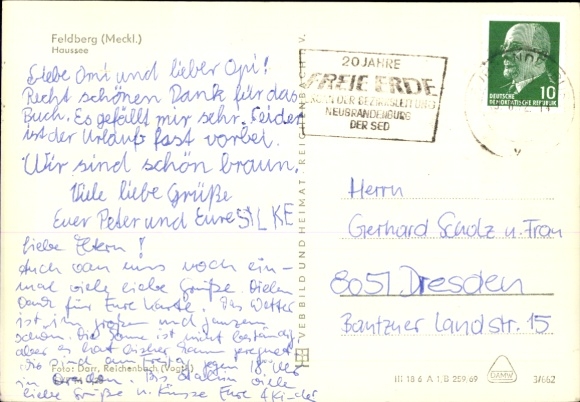 Feldberg (Meckl.)
Haussee
Liebe Omi und lieber Opi!
Recht schönen Dank für das
Buch. Es gefällt mir sehr. Leider
ist der Urlaub fast vorbei.
Wir sind schön braun.
Viele liebe Grüße
Euer Peter und Eure SILKE
Liebe Eltern!
Auch von uns noch ein-
mal viele liebe Grüße. Vielen
Dank für Eure Karte. Das Wetter
ist im großen und ganzen
schön. Die Sonne ist nicht beständig,
aber es hat bisher kaum geregnet.
Wir sind am Freitag gegen 18 Uhr
in Dresden. Bis dahin viele
liebe Grüße u. Küsse Eure
Foto: Darr. Reichenbach (Vogtl.)
VEB BILD UND HEIMAT REICHENBACH I. V.
20 JAHRE
FREIE ERDE
ORGAN DER BEZIRKSLEITUNG
NEUBRANDENBURG
DER SED
10
DEUTSCHE
DEMOKRATISCHE REPUBLIK
Herrn
Gerhard Scholz u. Frau
8051 Dresden
Bautzner Landstr. 15
III 18 6 A 1/B 259/69
DAMW
3/662